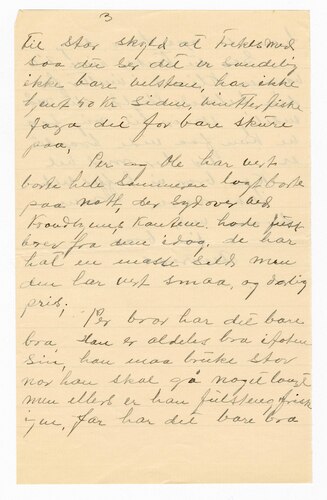 3
til stor skyld at
saa du ser det er sandelig
ikke bare velstan, har ikke
tjent 50 kr siden vinterfiske
Jaja du for bare skure
paa,
Per og Ole har vert
borte hele sommeren langt borte
paa nott, der sydover ved
Trondhjems kanten hade just
brev fra dem idag, de har
hat en masse seld men
den har vert smaa, og daarlig
pris;
Per bror har det bare
bra han er aldeles bra i foten
sin, han maa bruke stor
nor han skal gå noget langt
men ellers er han fulsteng frisk
igen, far har det bare bra